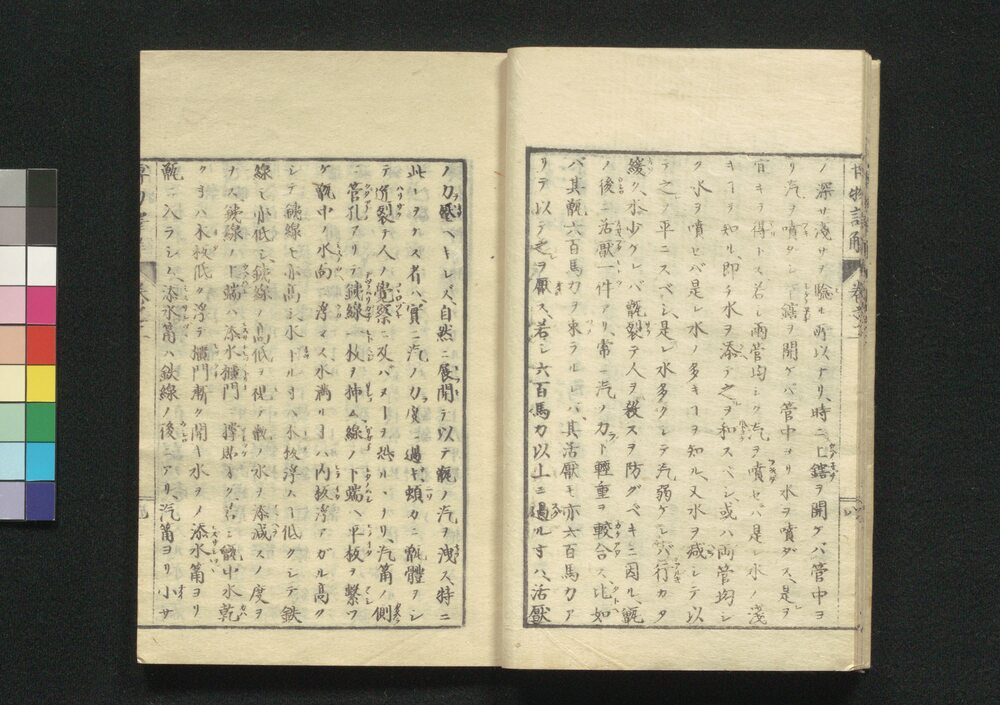 博物語解 巻之二
ノ深サ浅サヲ験ル所以ナリ、時ニ上鎋ヲ開ケバ管中ヨ
リ汽ヲ噴ダシ下鎋ヲ開ケバ管中ヨリ水ヲ噴ダス、是ヲ
宜キヲ得トス若シ両管均シク汽ヲ噴セバ是レ水ノ浅
キヿヲ知ル、即チ水ヲ添テ之ヲ和スベシ、或ハ両管均シ
ク水ヲ噴セバ是レ水ノ多キヿヲ知ル、又水ヲ减シテ以
テ之ヲ平ニスベシ、是レ水多クシテ汽弱ケレバ行カタ
緩ク、水少クレバ甑裂テ人ヲ殺スヲ防グベキニ因ル、甑
ノ後ニ活厭一件アリ、常ニ汽ノ力ト軽重ヲ較合ス、比如
バ其甑六百馬力ヲ来ラルレバ、其活厭モ亦六百馬力ア
リテ以テ之ヲ厭ス、若シ六百馬力以上ニ過ル寸ハ、活厭
ノ力壓ヘキレズ、自然ニ展開テ以テ甑ノ汽ヲ洩ス、特ニ
此レヲナス者ハ、實ニ汽ノ力度ニ過ギ頓カニ甑體ヲシ
テ迸裂テ人ノ覺察ニ及バヌヿヲ恐ルヽナリ、汽筩ノ側
ニ管孔アリテ鐵線一枚ヲ挿ム線ノ下端ヘ平板ヲ繋ヲ
ケ甑中ノ水面ニ浮マス水満ル寸ハ内板浮アガル高ク
シテ鐵線モ亦高シ水下ル寸ハ木板浮ヘヿ低クシテ鉄
線モ亦低シ、鐵線ノ高低ヲ視テ甑ノ水ヲ添减スノ度ヲ
ナス鐵線ノ上端ハ添水櫃門ニ撑貼オク若シ甑中水乾
ク寸ハ木板低ク浮テ櫃門漸ク開キ水ヲノ添水筩ヨリ
甑ニ入ラシム、添水筩ハ鉄線ノ後ニアリ、汽筩ヨリ小サ